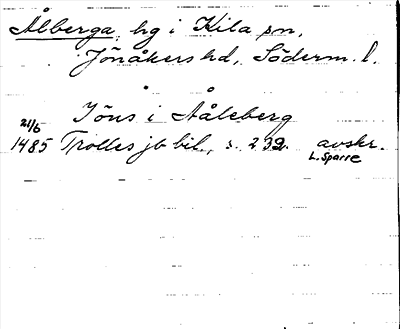 Ålberga, hg i Kila sn,
Jönåkers hd, Söderm. l.
Jöns i Åålebærg
21/6
1485 Trolles jb bil., s. 232. avskr.
L. Sparre